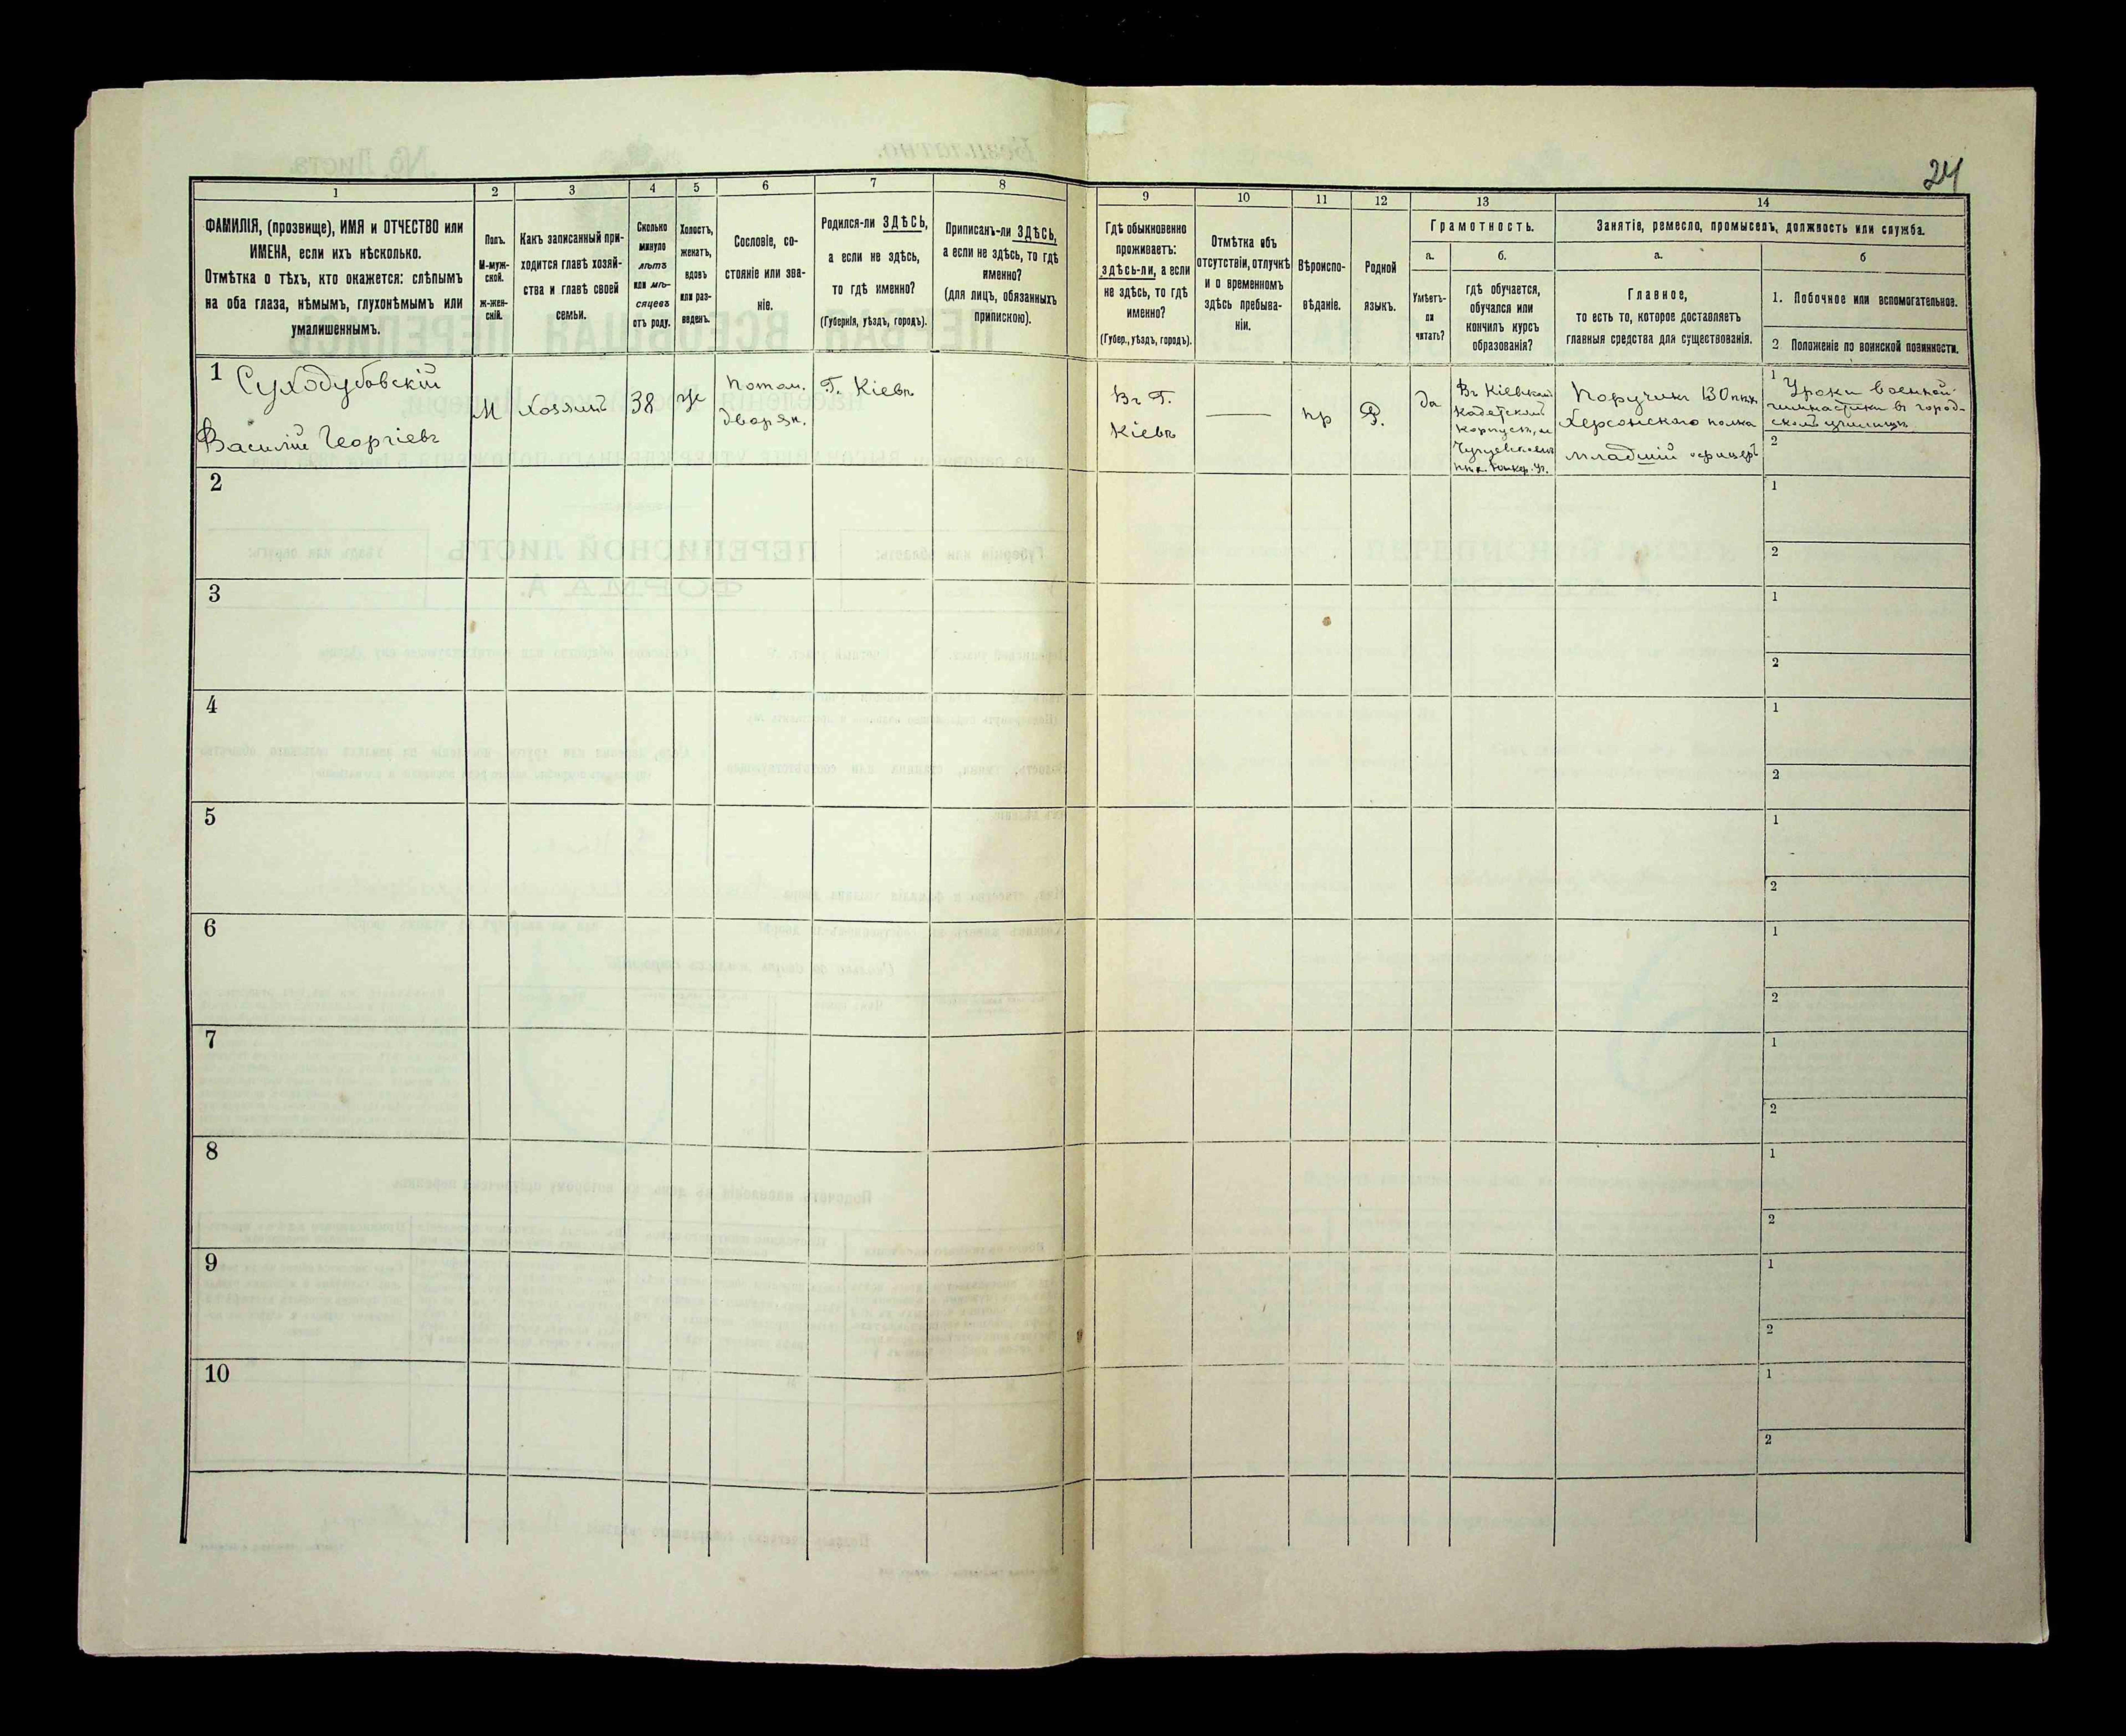 24
1
2
3
4
5
6
7
8
9
10
11
12
13
14
ФАМИЛІЯ, (прозвище), ИМЯ и ОТЧЕСТВО или
ИМЕНА, если ихъ нѣсколько.
Отмѣтка о тѣхъ, кто окажется: слѣпымъ
на оба глаза, нѣмымъ, глухонѣмымъ или
умалишеннымъ.
Полъ.
М-муж-
ской.
Ж-жен-
скій.
Какъ записанный при-
ходится главѣ хозяй-
ства и главѣ своей
семьи.
Сколько
минуло
лѣтъ
или мѣ-
сяцевъ
отъ роду.
Холостъ,
женатъ,
вдовъ
или раз-
веденъ.
Сословіе, со-
стояніе или зва-
ніе.
Родился-ли ЗДѢСЬ,
а если не здѣсь,
то гдѣ именно?
(Губернія, уѣздъ, городъ).
Приписанъ-ли ЗДѢСЬ,
а если не здѣсь, то гдѣ
именно?
(для лицъ, обязанныхъ
припискою).
Гдѣ обыкновенно
проживаетъ:
здѣсь-ли, а если
не здѣсь, то гдѣ
именно?
(Губер., уѣздъ, городъ).
Отмѣтка объ
отсутствіи, отлучкѣ
и о временномъ
здѣсь пребыва-
ніи.
Вѣроиспо-
вѣданіе.
Родной
языкъ.
Грамотность.
а.
Умѣетъ-
ли
читать?
б.
гдѣ обучается,
обучался или
кончилъ курсъ
образованія?
Занятіе, ремесло, промыселъ, должность или служба.
а.
Главное,
то есть то, которое доставляетъ
главныя средства для существованія.
б
1. Побочное или вспомогательное.
2 Положеніе по воинской повинности.
1 Суходубовскій
Василій Георгіевъ
М
хозяинъ
38
ж
потом.
дворян.
Г. Кіевъ
Въ Г.
Кіевѣ
пр
Р.
да
Въ Кіевском
Кадетском
Корпусѣ, и
Чугуевском
Поручикъ 130 пѣх.
Херсонскаго полка
младшій офицеръ
1 Уроки военной
гимнастики въ город-
скомъ училищѣ
2
2
1
2
3
1
2
4
1
2
5
1
2
6
1
2
7
1
2
8
1
2
9
1
2
10
1
2